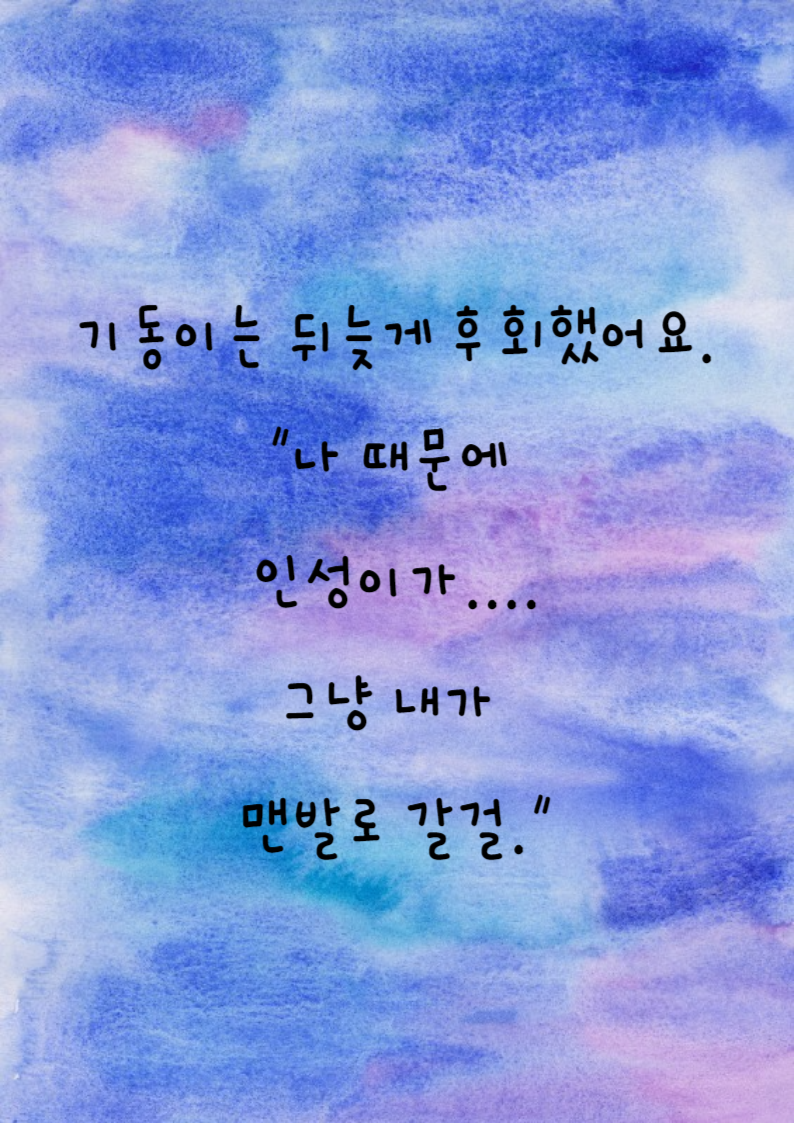 기동이는 뒤늦게 후회했어요.
"나 때문에
인성이가....
그냥 내가
맨발로 갈걸."